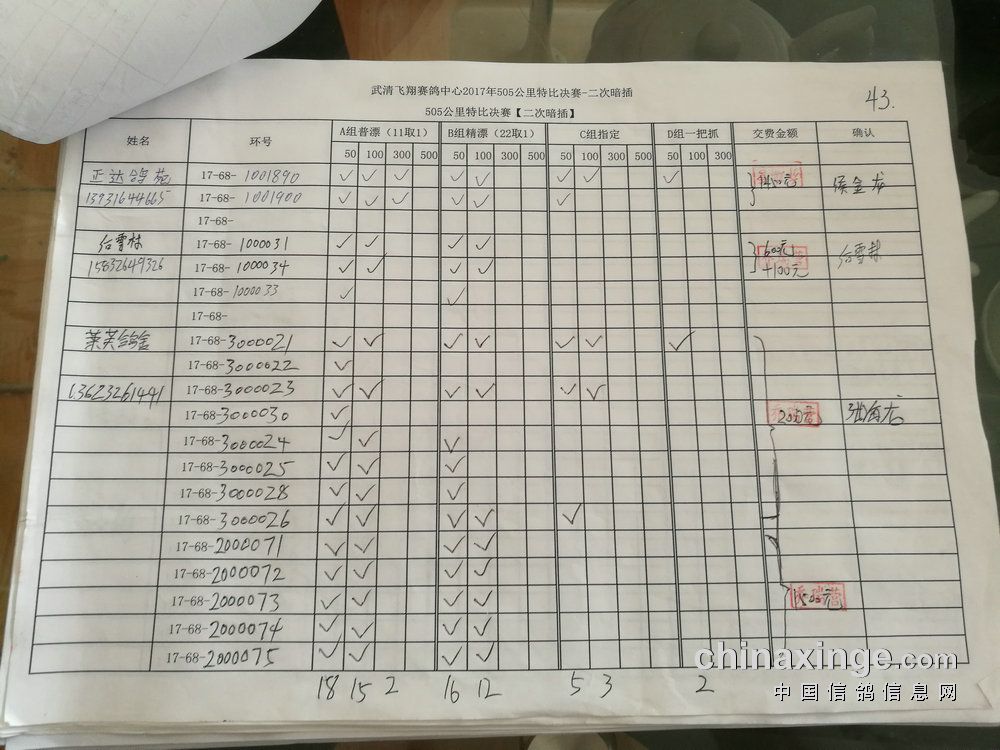 武清飞翔赛鸽中心2017年505公里特比决赛-二次暗插
43.
505公里特比决赛【二次暗插】
姓名 环号 A组普漂（11取1） B组精漂（22取1） C组指定 D组一把抓 交费金额 确认
50 100 300 500 50 100 300 500 50 100 300 500 50 100 300
正达鸽苑 17-68-1001890 ✓ ✓ ✓ ✓ ✓ ✓ ✓ ✓
13931644665 17-68-1001900 ✓ ✓ ✓ ✓ ✓ ✓
17-68-
17-68-1000031 ✓ ✓ ✓ ✓ 600元
15832649326 17-68-1000034 ✓ ✓ ✓ ✓ +100元
17-68-1000033 ✓ ✓
17-68-
莱芙鸽舍 17-68-3000021 ✓ ✓ ✓ ✓ ✓ ✓ ✓
17-68-3000022 ✓
13623261441 17-68-3000023 ✓ ✓ ✓ ✓ ✓ ✓
17-68-3000030 ✓
17-68-3000024 ✓ ✓ ✓
17-68-3000025 ✓ ✓ ✓
17-68-3000028 ✓ ✓ ✓
17-68-3000026 ✓ ✓ ✓ ✓ ✓
17-68-2000071 ✓ ✓ ✓ ✓
17-68-2000072 ✓ ✓ ✓ ✓
17-68-2000073 ✓ ✓ ✓ ✓
17-68-2000074 ✓ ✓ ✓ ✓
17-68-2000075 ✓ ✓ ✓ ✓
18 15 2 16 12 5 3 2
chinaxinge.com
中国信鸽信息网